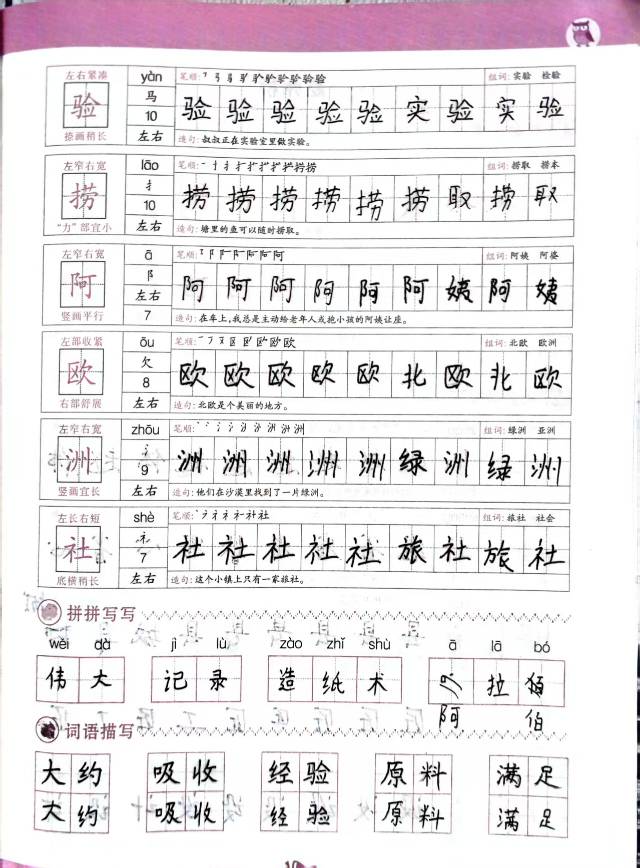 左右紧凑 yàn 笔顺: 组词: 实验 检验
验 马 验 验 验 验 验 实 验 实 验
10
捺画稍长 左右 造句: 叔叔正在实验室里做实验。
左窄右宽 lāo 笔顺: 组词: 捞取 捞本
捞 扌 捞 捞 捞 捞 捞 捞 取 捞 取
10
“力”部宜小 左右 造句: 塘里的鱼可以随时捞取。
左窄右宽 ā 笔顺: 组词: 阿姨 阿婆
阿 阝 阿 阿 阿 阿 阿 阿 姨 阿 姨
左右
竖画平行 7 造句: 在车上,我总是主动给老年人或抱小孩的阿姨让座。
左部收紧 ōu 笔顺: 组词: 北欧 欧洲
欧 欠 欧 欧 欧 欧 欧 北 欧 北 欧
8
右部舒展 左右 造句: 北欧是个美丽的地方。
左窄右宽 zhōu 笔顺: 组词: 绿洲 亚洲
洲 氵 洲 洲 洲 洲 洲 绿 洲 绿 洲
9
竖画宜长 左右 造句: 他们在沙漠里找到了一片绿洲。
左长右短 shè 笔顺: 组词: 旅社 社会
社 礻 社 社 社 社 社 旅 社 旅 社
7
底横稍长 左右 造句: 这个小镇上只有一家旅社。
拼拼写写
wěi dà jì lù zào zhǐ shù ā lā bó
伟 大 记 录 造 纸 术 拉
阿 伯
词语描写
大 约 吸 收 经 验 原 料 满 足
大 约 吸 收 经 验 原 料 满 足